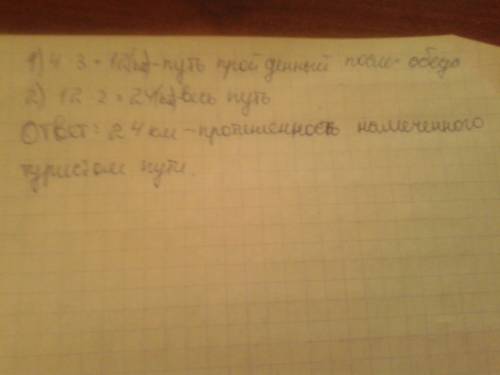 1) 4 · 3 = 12(км)-путь пройденный после обеда
2) 12 · 2 = 24(км)-весь путь
Ответ: 24 км - протяженность намеченного
туристом пути.